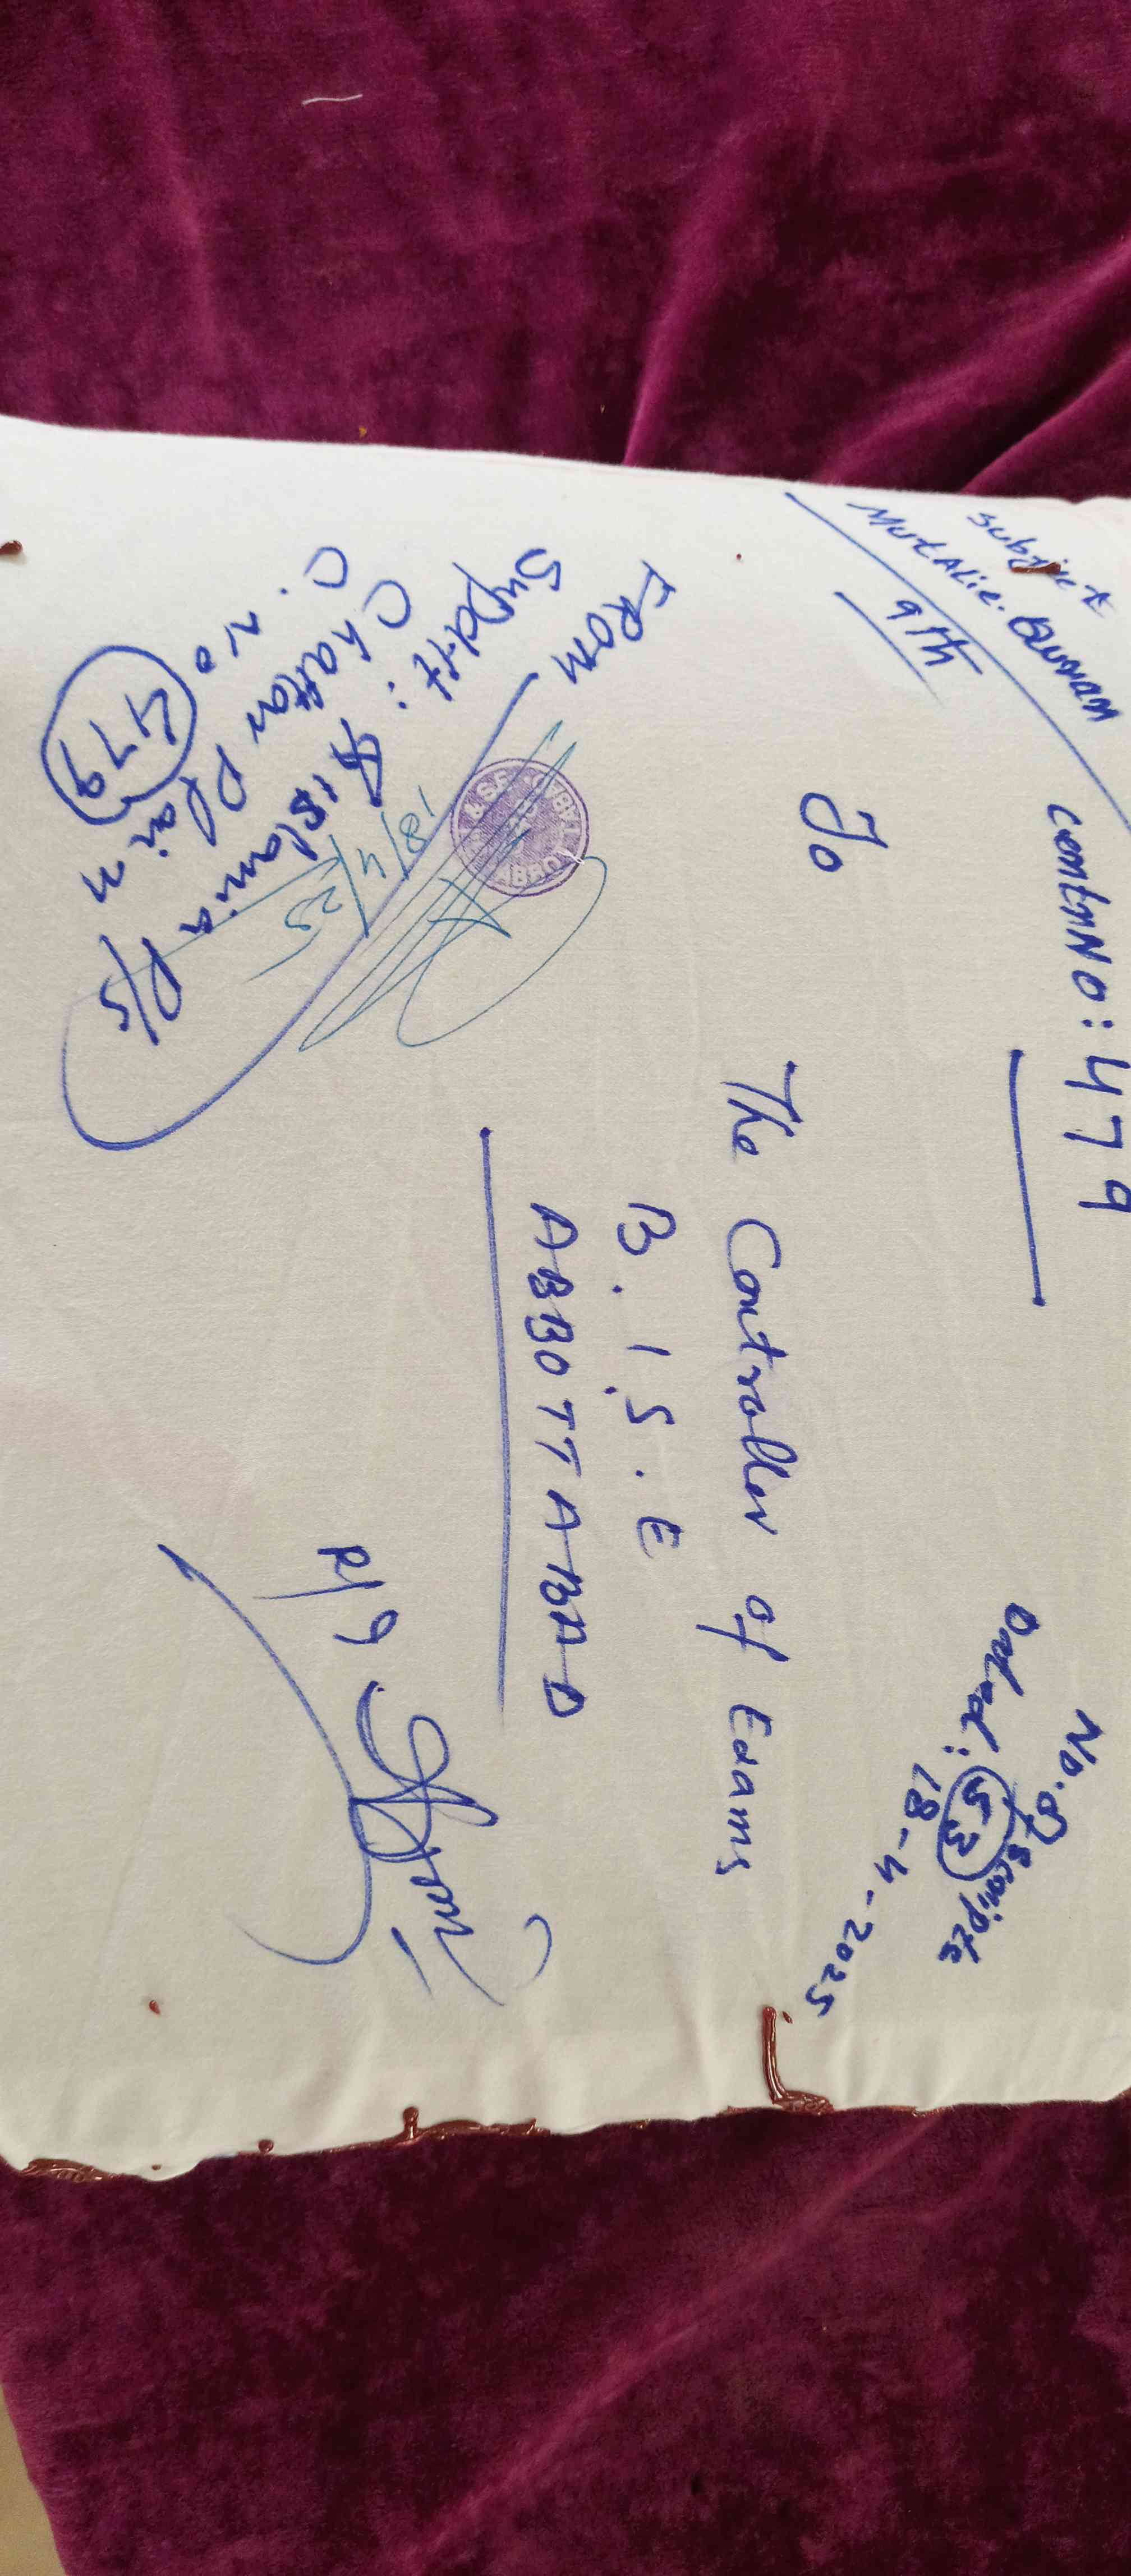 Subject
Mutalie. Quran
9th
CentrNo: 479
No. of Scripts
53
Dated: 18-4-2025
To
The Controller of Exams
B.I.S.E
ABBOTTABAD
FROM
Supdtt: Islamia P/S
Chattar Plain
C. No 479
18/4/25
P/9